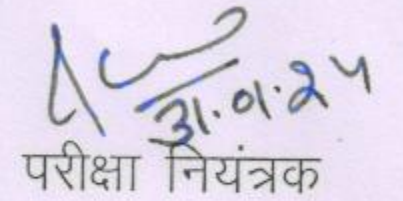 31.01.24
परीक्षा नियंत्रक